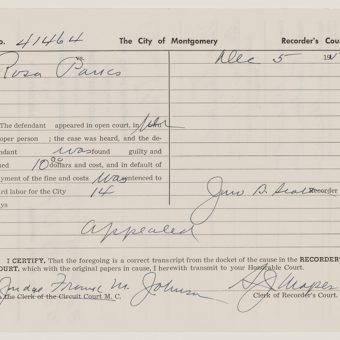 o. 41464 The City of Montgomery Recorder's Cou
Dec 5 19
vs.
Rosa Parks
The defendant appeared in open court, in
oper person ; the case was heard, and the de-
ndant was found guilty and
ned 10 00 dollars and cost, and in default of
yment of the fine and costs was sentenced to
rd labor for the City 14
ys
Jno B. Scott Recorder
Appealed
I CERTIFY, That the foregoing is a correct transcript from the docket of the cause in the RECORDER'
OURT, which with the original papers in cause, I herewith transmit to your Honorable Court.
Judge Frank M. Johnson
the Clerk of the Circuit Court M. C. Clerk of Recorder's Court.